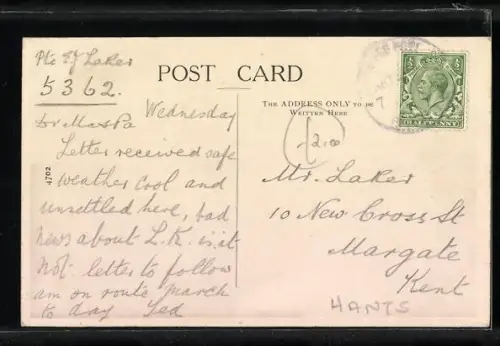 Pte T J Laker
5362.
POST CARD
Wednesday
Dr Ma & Pa
Letter received safe
weather cool and
unsettled here, bad
news about L.K. is it
not. letter to follow
am on route march
to day Ted
4702
THE ADDRESS ONLY TO BE
WRITTEN HERE
HALFPENNY
1
2.00
Mr. Laker
10 New Cross St
Margate
Kent
HANTS